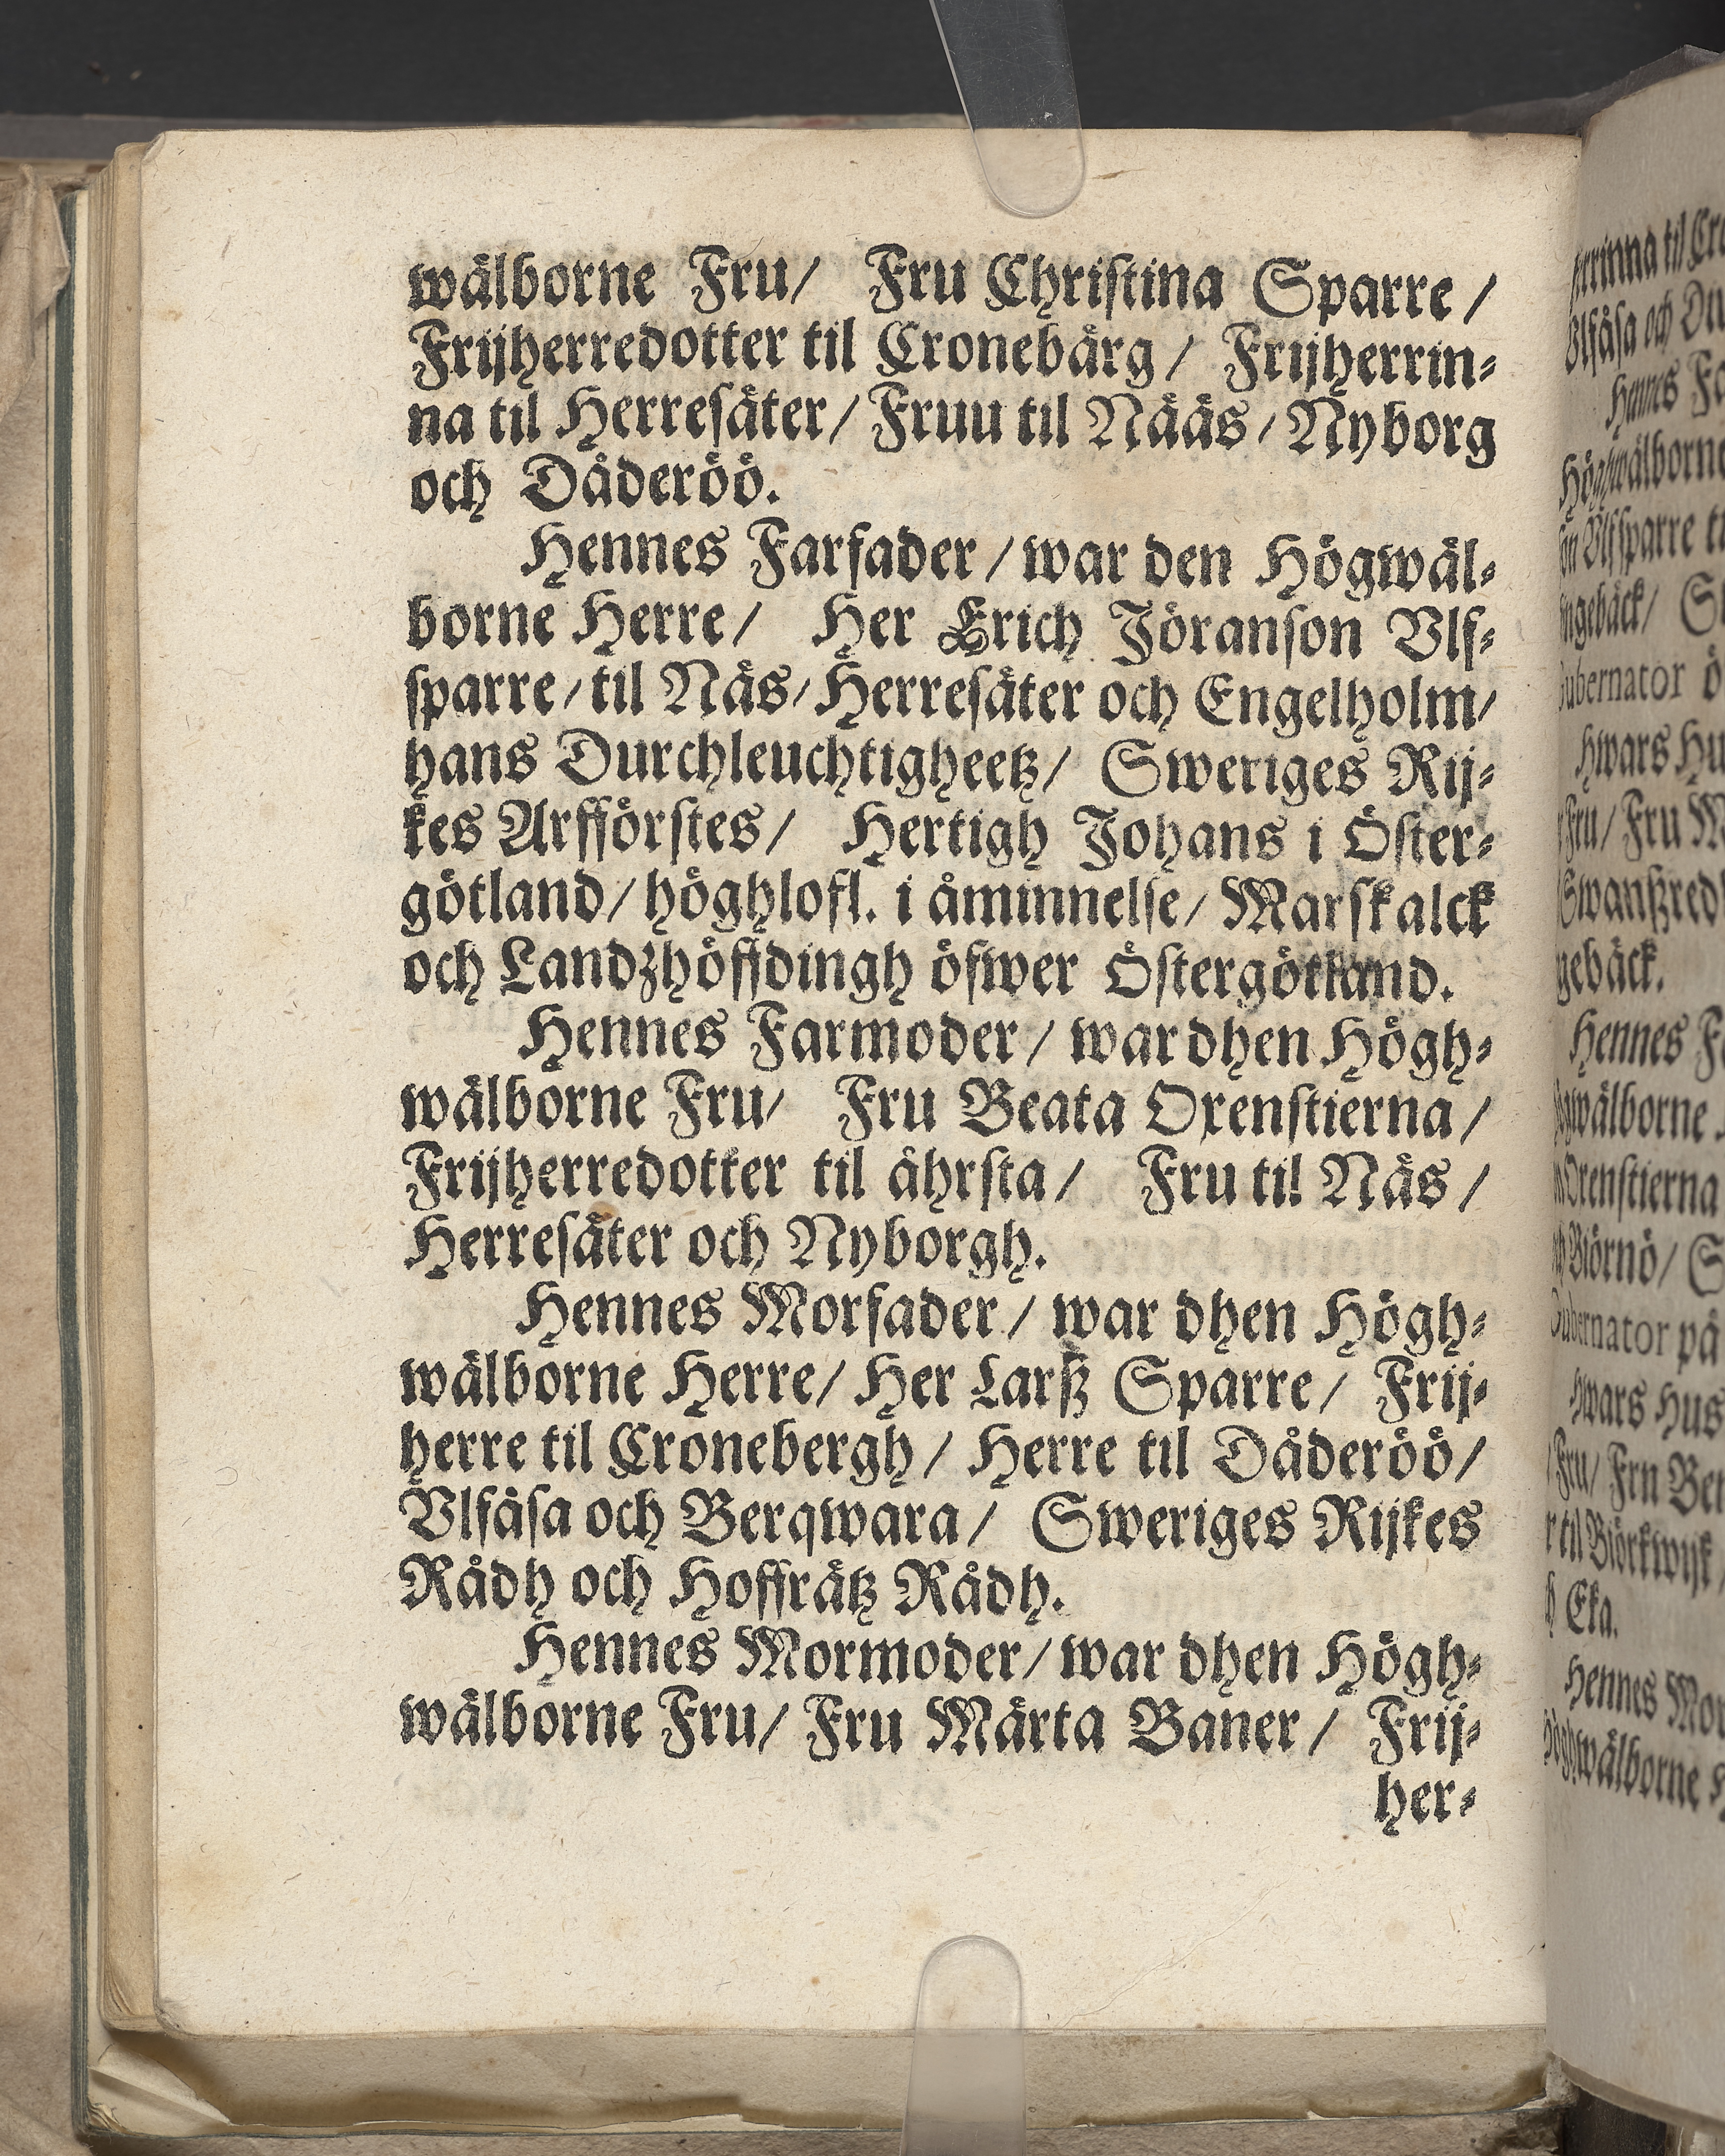 wälborne Fru/ Fru Christina Sparre/
Frijherredotter til Cronebärg/ Frijherrin-
na til Herresäter/ Fruu til Nääs/ Nyborg
och Dåderöö.
Hennes Farfader/ war den Högwäl-
borne Herre/ Her Erich Jöranson Vlf-
sparre/ til Näs/ Herresäter och Engelholm/
hans Durchleuchtigheetz/ Sweriges Rij-
kes Arfförstes/ Hertigh Johans i Öster-
götland/ höghlofl. i åminnelse/ Marskalck
och Landzhöffdingh öfwer Östergötland.
Hennes Farmoder/ war dhen Högh-
wälborne Fru/ Fru Beata Oxenstierna/
Frijherredotter til åhrsta/ Fru til Näs/
Herresäter och Nyborgh.
Hennes Morfader/ war dhen Högh-
wälborne Herre/ Her Larß Sparre/ Frij-
herre til Cronebergh/ Herre til Dåderöö/
Vlfåsa och Berqwara/ Sweriges Rijkes
Rådh och Hoffrätz Rådh.
Hennes Mormoder/ war dhen Högh-
wälborne Fru/ Fru Märta Baner/ Frij-
her-
rrinna til Cro
Vlfåsa och Du
Hennes Fa
Höghwälborne
on Vlfsparre ti
ngebäck/ S
ubernator ö
hwars Hu
Fru/ Fru M
Swanßred
gebäck.
Hennes F
gwälborne
Oxenstierna
Biörnö/ S
ubernator på
hwars Hus
Fru/ Frn Ber
r til Biörkwijk
h Eka.
Hennes Mor
wälborne